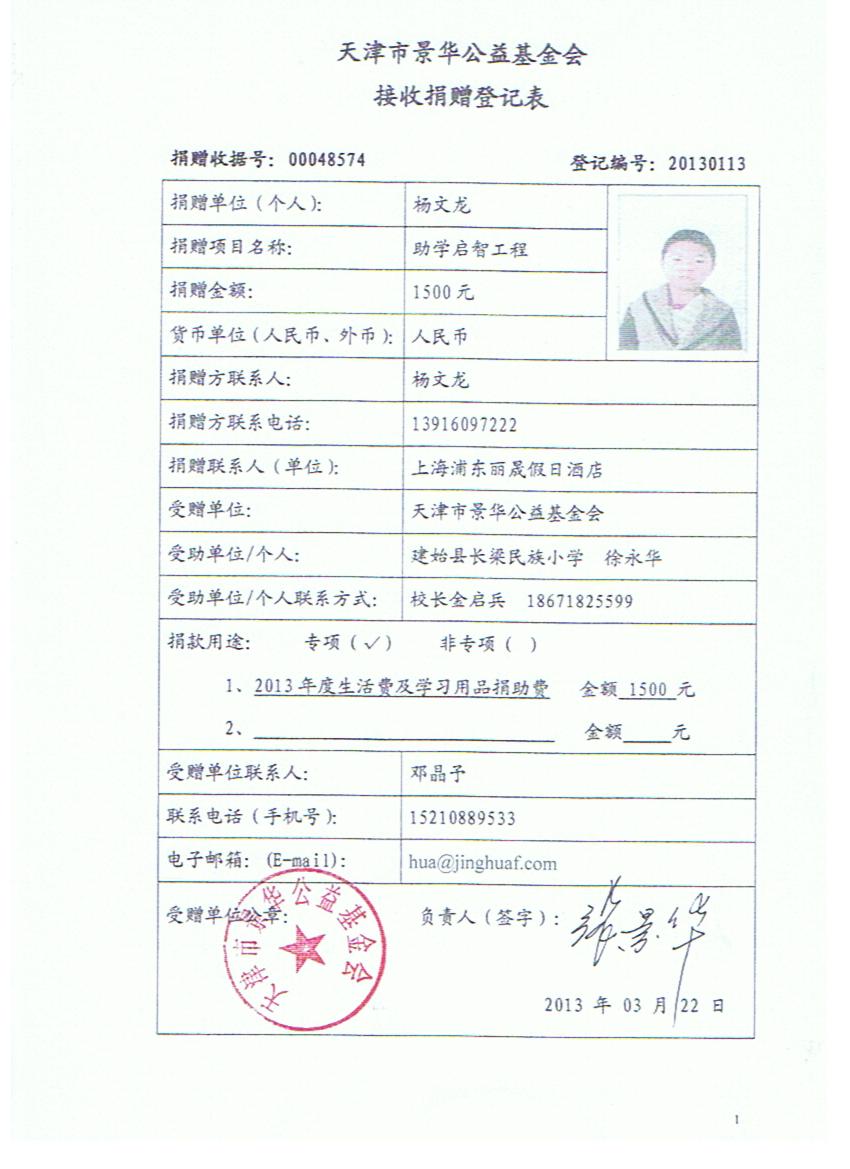 天津市景华公益基金会
接收捐赠登记表
捐赠收据号：00048574 登记编号：20130113
捐赠单位（个人）： 杨文龙
捐赠项目名称： 助学启智工程
捐赠金额： 1500 元
货币单位（人民币、外币）： 人民币
捐赠方联系人： 杨文龙
捐赠方联系电话： 13916097222
捐赠联系人（单位）： 上海浦东丽晟假日酒店
受赠单位： 天津市景华公益基金会
受助单位/个人： 建始县长梁民族小学 徐永华
受助单位/个人联系方式： 校长金启兵 18671825599
捐款用途： 专项（✓） 非专项（ ）
1、2013 年度生活费及学习用品捐助费 金额 1500 元
2、 金额 元
受赠单位联系人： 邓晶子
联系电话（手机号）： 15210889533
电子邮箱：(E-mail)： hua@jinghuaf.com
受赠单位公章： 负责人（签字）：
天津市景华公益基金会
景华
2013 年 03 月 22 日
1